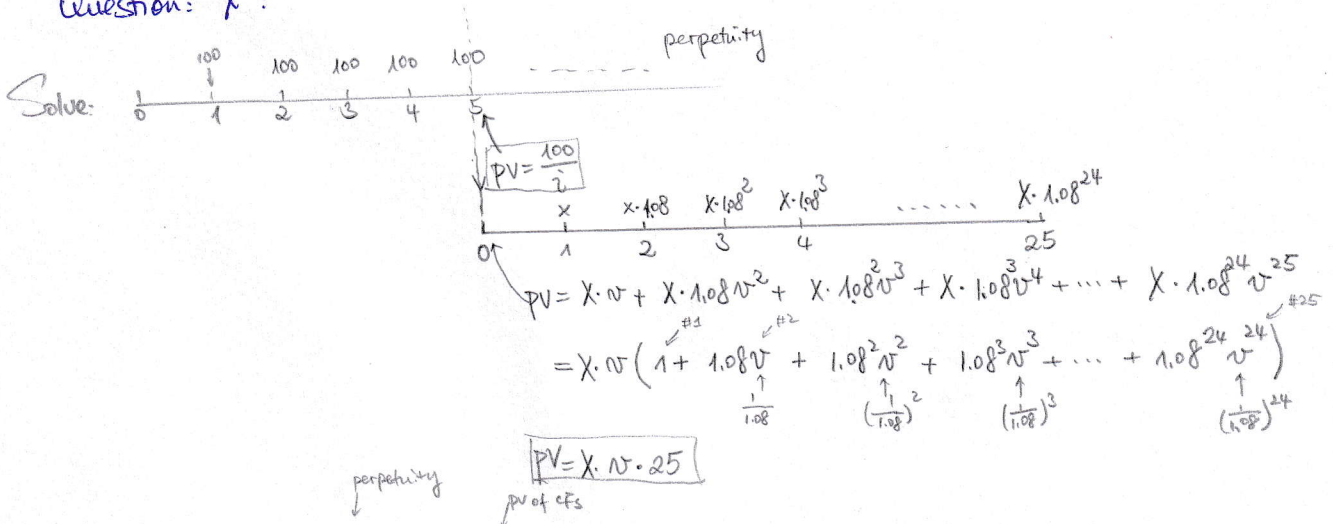 Question: X?
perpetuity
100 100 100 100 100 - - - - -
Solve: 0 1 2 3 4 5
PV = 100/i
X X·1.08 X·1.08² X·1.08³ ...... X·1.08²⁴
0 1 2 3 4 25
PV = X·v + X·1.08v² + X·1.08²v³ + X·1.08³v⁴ + ... + X·1.08²⁴v²⁵
#1 #2 #25
= X·v(1 + 1.08v + 1.08²v² + 1.08³v³ + ... + 1.08²⁴v²⁴)
1/1.08 (1/1.08)² (1/1.08)³ (1/1.08)²⁴
PV = X·v·25
perpetuity
PV of CFs